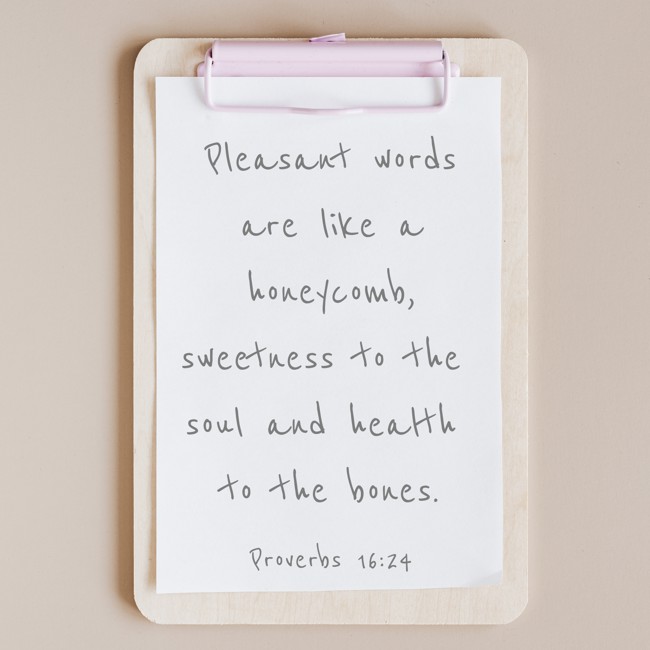 Pleasant words
are like a
honeycomb,
sweetness to the
soul and health
to the bones.
Proverbs 16:24